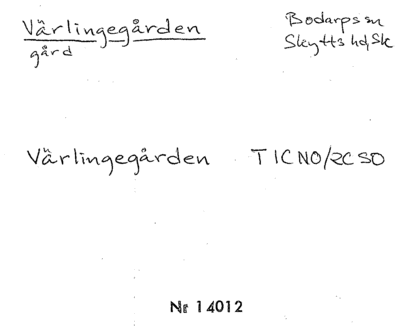 Värlingegården
gård
Bodarps sn
Skytts hd, Sk
Värlingegården TICNO/RCSO
Nr 14012